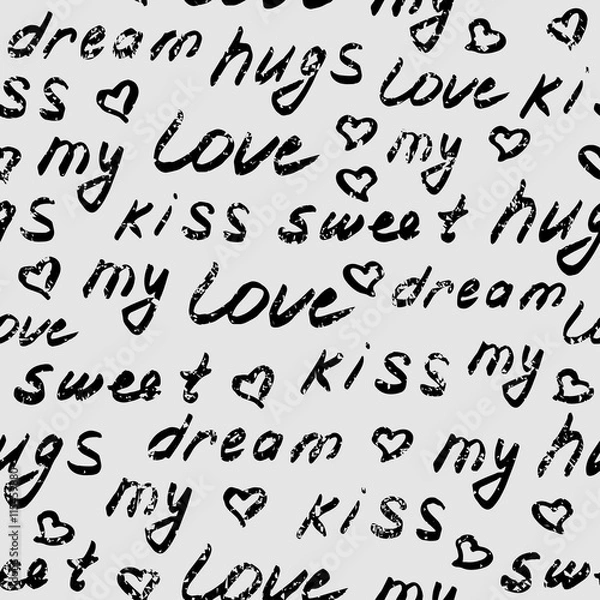 love my
dream hugs love ki
ss my love my
kiss sweet hug
gs my love dream
ove sweet kiss my
ugs dream my hu
my kiss
et love my sw